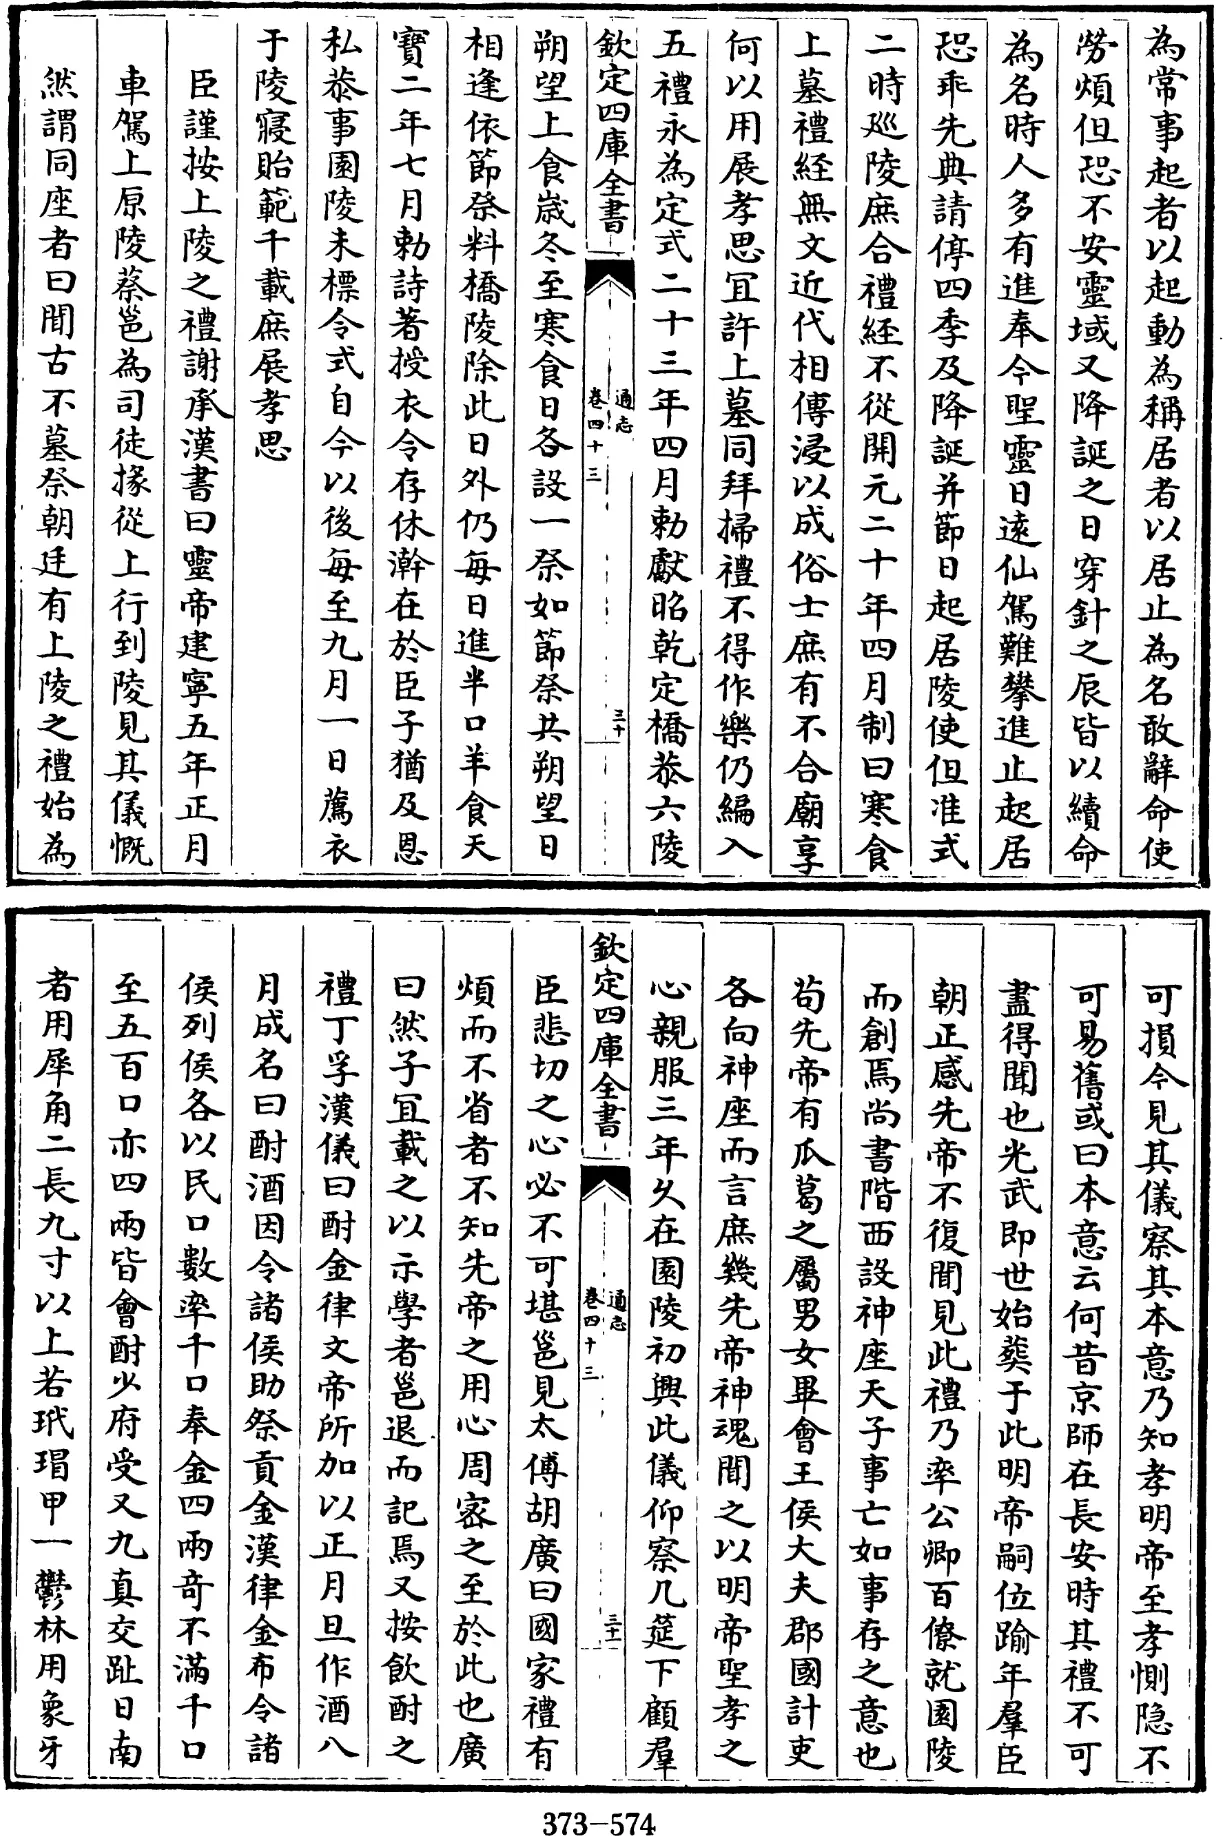 為常事起者以起動為稱居者以居止為名敢辭命使
勞煩但恐不安靈域又降誕之日穿針之辰皆以續命
為名時人多有進奉今聖靈日遠仙駕難攀進止起居
恐乖先典請停四季及降誕并節日起居陵使但准式
二時巡陵庶合禮經不從開元二十年四月制曰寒食
上墓禮經無文近代相傳浸以成俗士庶有不合廟享
何以用展孝思宜許上墓同拜掃禮不得作樂仍編入
五禮永為定式二十三年四月勅獻昭乾定橋恭六陵
欽定四庫全書
通志
卷四十三
三十
朔望上食歳冬至寒食日各設一祭如節祭共朔望日
相逢依節祭料橋陵除此日外仍每日進半口羊食天
寶二年七月勅詩著授衣令存休澣在於臣子猶及恩
私恭事園陵未標令式自今以後每至九月一日薦衣
于陵寢貽範千載庶展孝思
臣謹按上陵之禮謝承漢書曰靈帝建寧五年正月
車駕上原陵蔡邕為司徒掾從上行到陵見其儀慨
然謂同座者曰聞古不墓祭朝廷有上陵之禮始為
可損今見其儀察其本意乃知孝明帝至孝惻隐不
可易舊或曰本意云何昔京師在長安時其禮不可
盡得聞也光武即世始葬于此明帝嗣位踰年羣臣
朝正感先帝不復聞見此禮乃率公卿百僚就園陵
而創焉尚書階西設神座天子事亡如事存之意也
茍先帝有瓜葛之屬男女畢會王侯大夫郡國計吏
各向神座而言庶幾先帝神魂聞之以明帝聖孝之
心親服三年久在園陵初興此儀仰察几筵下顧羣
欽定四庫全書
通志
卷四十三
三十一
臣悲切之心必不可堪邕見太傅胡廣曰國家禮有
煩而不省者不知先帝之用心周宻之至於此也廣
曰然子宜載之以示學者邕退而記焉又按飲酎之
禮丁孚漢儀曰酎金律文帝所加以正月旦作酒八
月成名曰酎酒因令諸侯助祭貢金漢律金布令諸
侯列侯各以民口數率千口奉金四兩竒不滿千口
至五百口亦四兩皆會酎少府受又九真交趾日南
者用犀角二長九寸以上若玳瑁甲一鬱林用象牙
373-574